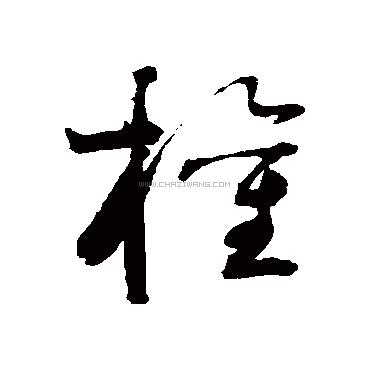 權
WWW.CHAZIWANG.COM